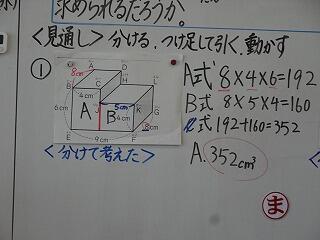 求められるだろうか。
<見通し>分ける、つけ足して引く、動かす
①
A式 8×4×6=192
B式 8×5×4=160
式 192+160=352
A. 352cm³
8cm
A
D
B
C
H
L
4cm
5cm
6cm
A
J
B
K
4cm
G
8cm
E
9cm
F
<分けて考えた>
ま